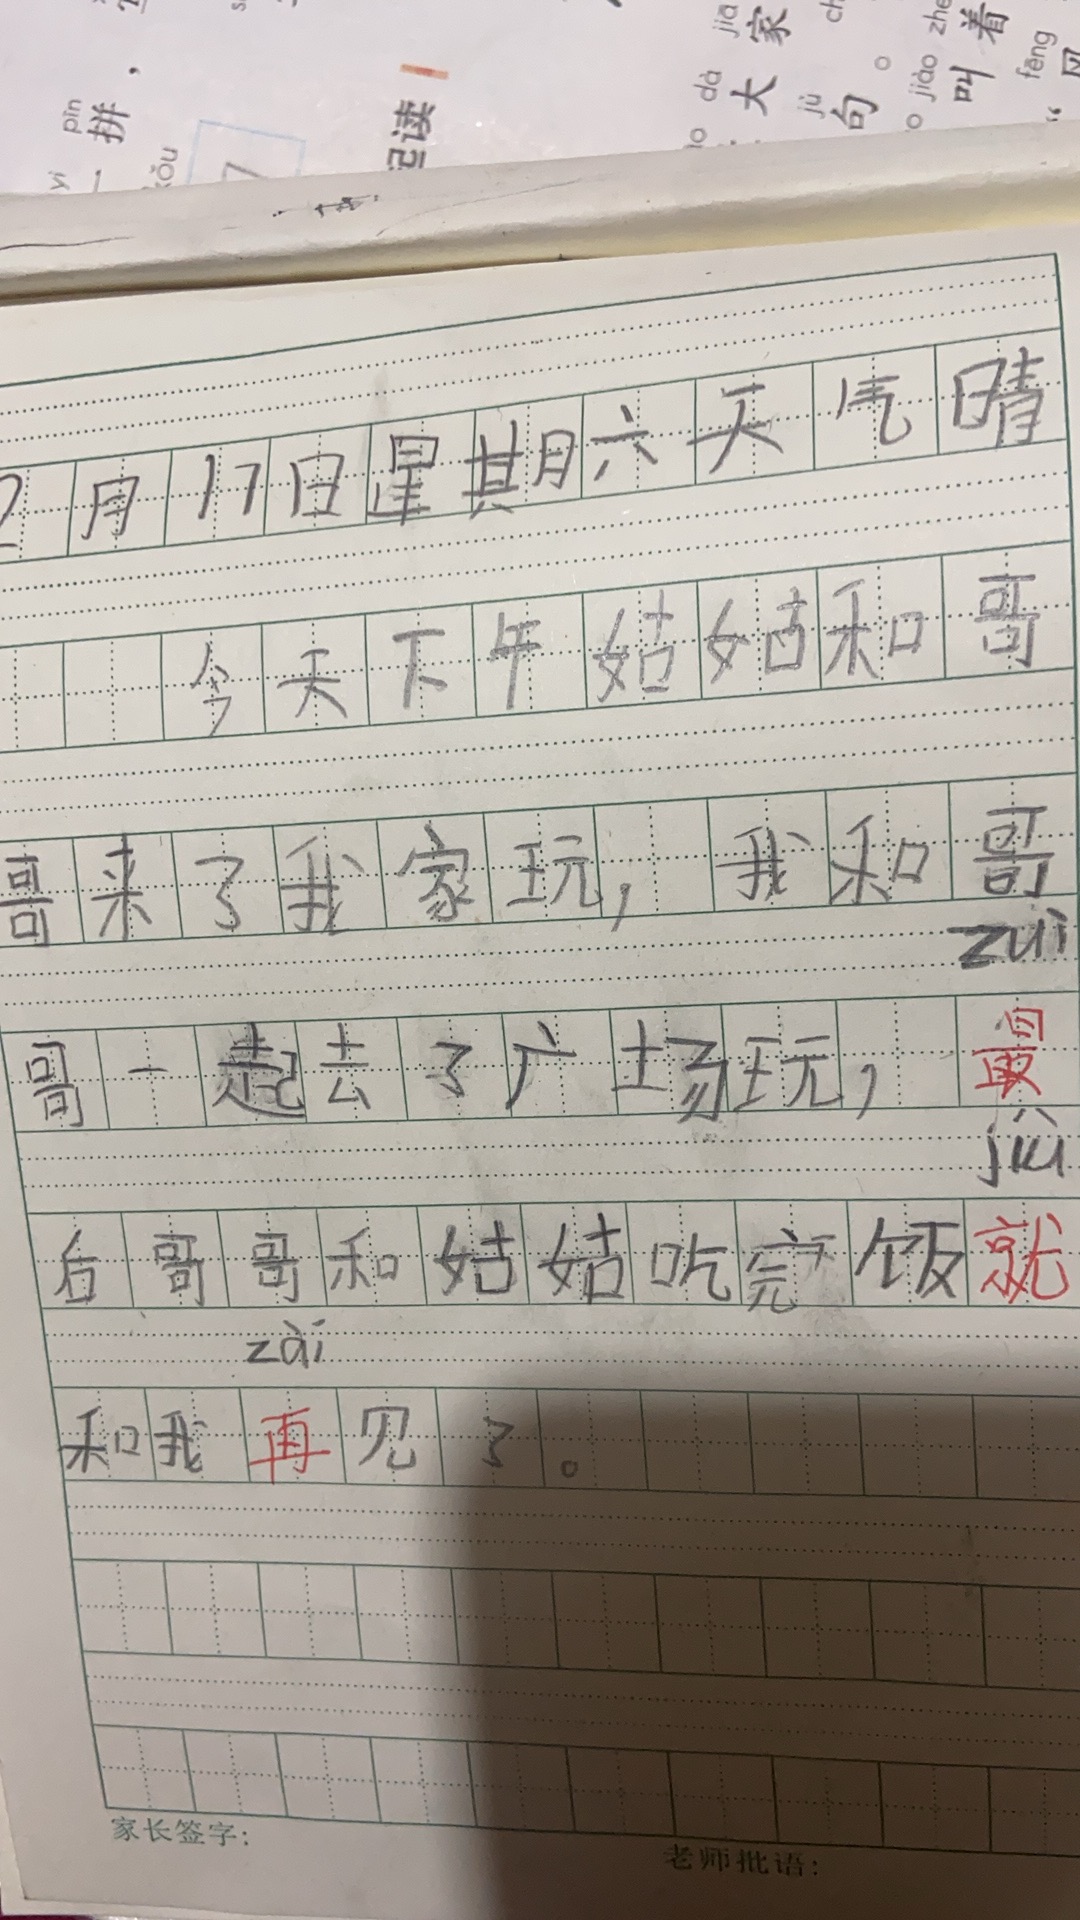 yi pīn
一拼，
kǒu
记读
dà jiā
大家
jù
句。
jiào zhe
叫着
fēng
“风
2月17日星期六天气晴
今天下午姑姑和哥
哥来了我家玩，我和哥
zuì
哥一起去了广场玩，最
jiù
后哥哥和姑姑吃完饭就
zài
和我再见了。
家长签字：
老师批语：